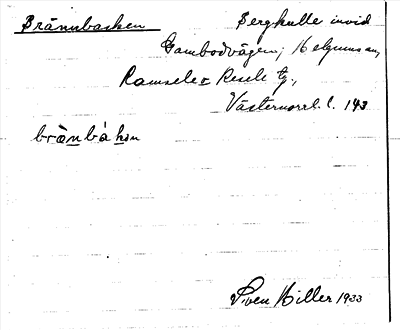 Brännbacken Bergkulle invid
Gambodvägen,
Ramsele Resele tg.,
Västernorrl. l. 143
brä̀nbàkən
Sven Hiller 1933